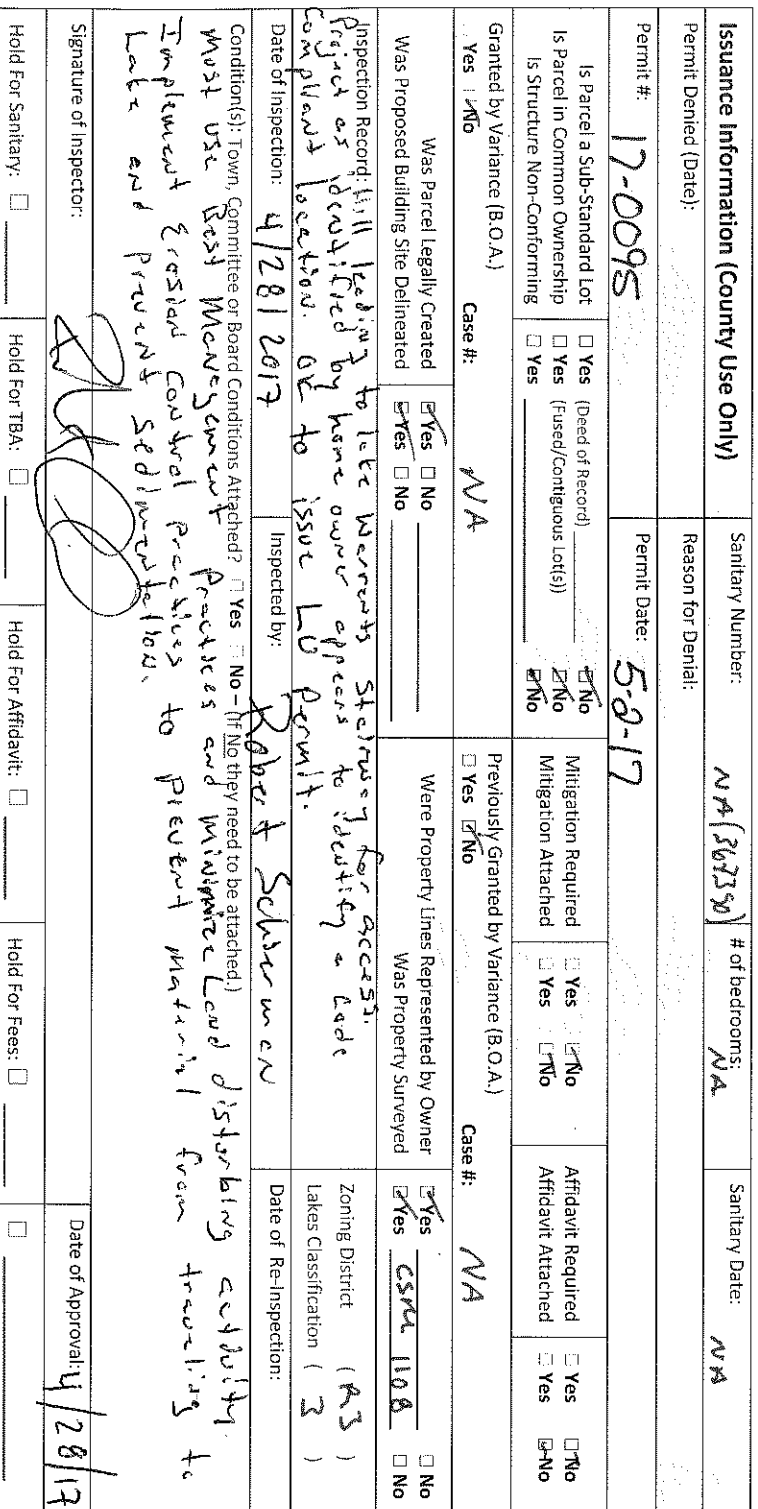 Issuance Information (County Use Only)
Sanitary Number: NA (369390) # of bedrooms: NA Sanitary Date: NA
Permit Denied (Date): Reason for Denial:
Permit #: 17-0095 Permit Date: 5-2-17
Is Parcel a Sub-Standard Lot ☐ Yes (Deed of Record) ☑ No
Is Parcel in Common Ownership ☐ Yes (Fused/Contiguous Lot(s)) ☑ No
Is Structure Non-Conforming ☐ Yes ☑ No
Mitigation Required ☐ Yes ☑ No
Mitigation Attached ☐ Yes ☑ No
Affidavit Required ☐ Yes ☑ No
Affidavit Attached ☐ Yes ☑ No
Granted by Variance (B.O.A.)
☐ Yes ☑ No Case #: NA
Previously Granted by Variance (B.O.A.)
☐ Yes ☑ No Case #: NA
Was Parcel Legally Created ☑ Yes ☐ No
Was Proposed Building Site Delineated ☑ Yes ☐ No
Were Property Lines Represented by Owner ☑ Yes ☐ No
Was Property Surveyed ☑ Yes CSM 1108 ☐ No
Inspection Record: Hill leading to lake warrents Stairway for access.
Project as identified by home owner appears to identify a code
compliant location. OK to issue LU permit.
Zoning District (R3)
Lakes Classification (3)
Date of Inspection: 4/28/2017 Inspected by: Robert Schierman Date of Re-Inspection:
Condition(s): Town, Committee or Board Conditions Attached? ☐ Yes ☐ No – (If No they need to be attached.)
Must use Best Management practices and minimize Land disturbing activity.
Implement Erosion Control practices to prevent material from traveling to
Lake and prevent Sedimentation.
Signature of Inspector: Date of Approval: 4/28/17
Hold For Sanitary: ☐ Hold For TBA: ☐ Hold For Affidavit: ☐ Hold For Fees: ☐ ☐